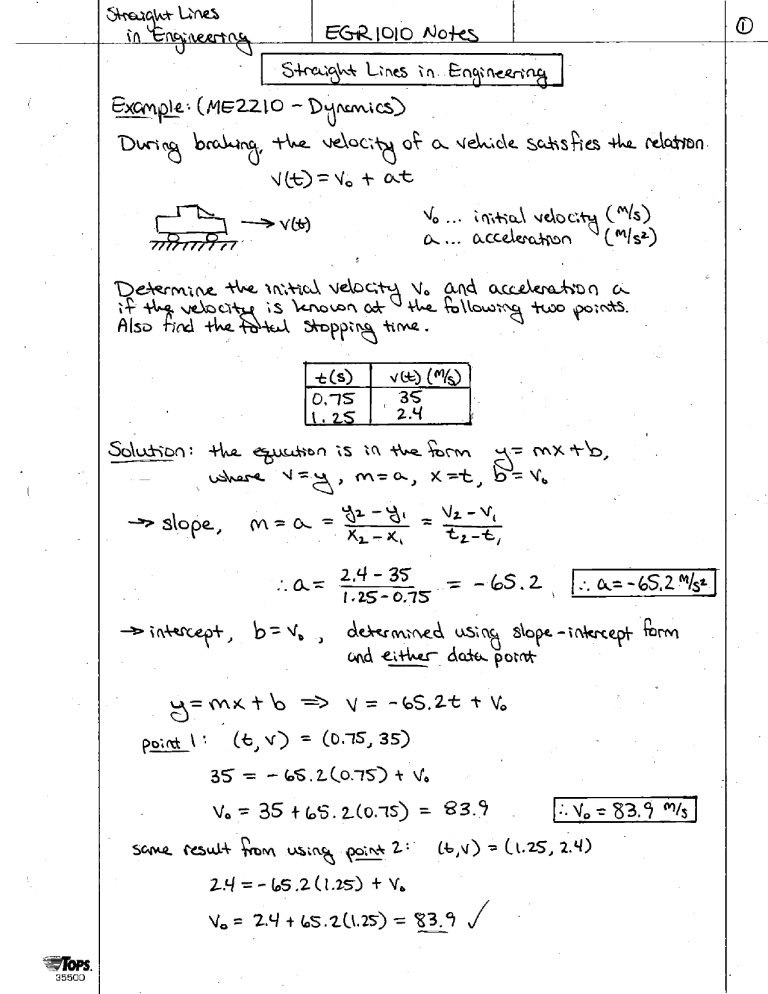 Straight Lines
in Engineering
EGR1010 Notes
①
Straight Lines in Engineering
Example: (ME2210 - Dynamics)
During braking, the velocity of a vehicle satisfies the relation
v(t) = v₀ + at
→ v(t)
v₀ ... initial velocity (m/s)
a ... acceleration (m/s²)
Determine the initial velocity v₀ and acceleration a
if the velocity is known at the following two points.
Also find the total stopping time.
t(s) v(t) (m/s)
0.75 35
1.25 2.4
Solution: the equation is in the form y = mx + b,
where v = y, m = a, x = t, b = v₀
→ slope, m = a = (y₂ - y₁)/(x₂ - x₁) = (v₂ - v₁)/(t₂ - t₁)
∴ a = (2.4 - 35)/(1.25 - 0.75) = -65.2 ∴ a = -65.2 m/s²
→ intercept, b = v₀, determined using slope-intercept form
and either data point
y = mx + b ⇒ v = -65.2t + v₀
point 1: (t, v) = (0.75, 35)
35 = -65.2(0.75) + v₀
v₀ = 35 + 65.2(0.75) = 83.9 ∴ v₀ = 83.9 m/s
same result from using point 2: (t, v) = (1.25, 2.4)
2.4 = -65.2(1.25) + v₀
v₀ = 2.4 + 65.2(1.25) = 83.9 ✓
TOPS.
35500